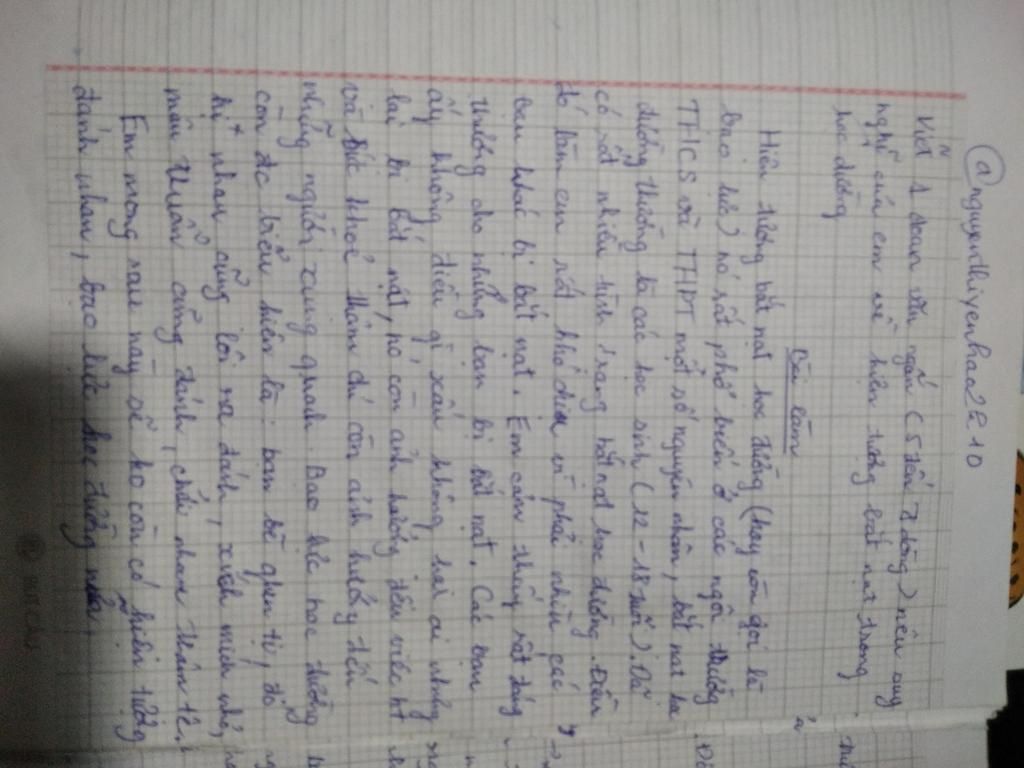 @nguyenthiyenhoa2210
Viết 1 đoạn văn ngắn (5 đến 7 dòng) nêu suy
nghĩ của em về hiện tượng bắt nạt trong
học đường
Bài làm
Hiện tượng bắt nạt học đường (hay còn gọi là
bạo lực) nó rất phổ biến ở các ngôi trường
THCS và THPT một số nguyên nhân, bắt nạt học
đường thường là các học sinh (12 - 18 tuổi). Đã
có rất nhiều tình trạng bắt nạt học đường. Điều
đó làm em rất khó chịu vì phải nhìn các
bạn khác bị bắt nạt. Em cảm thấy rất đáng
thương cho những bạn bị bắt nạt. Các bạn
ấy không điều gì xấu không hại ai nhưng
lại bị bắt nạt, nó còn ảnh hưởng đến việc ht
và sức khoẻ thậm chí còn ảnh hưởng đến
những người xung quanh. Bạo lực học đường
còn đc biểu hiện là: bạn bè ghen tị, đố
kị nhau cũng lôi ra đánh, xích mích nhỏ,
mâu thuẫn cũng đánh, chửi nhau thậm tệ.
Em mong sau này sẽ ko còn có hiện tượng
đánh nhau, bạo lực học đường nữa.